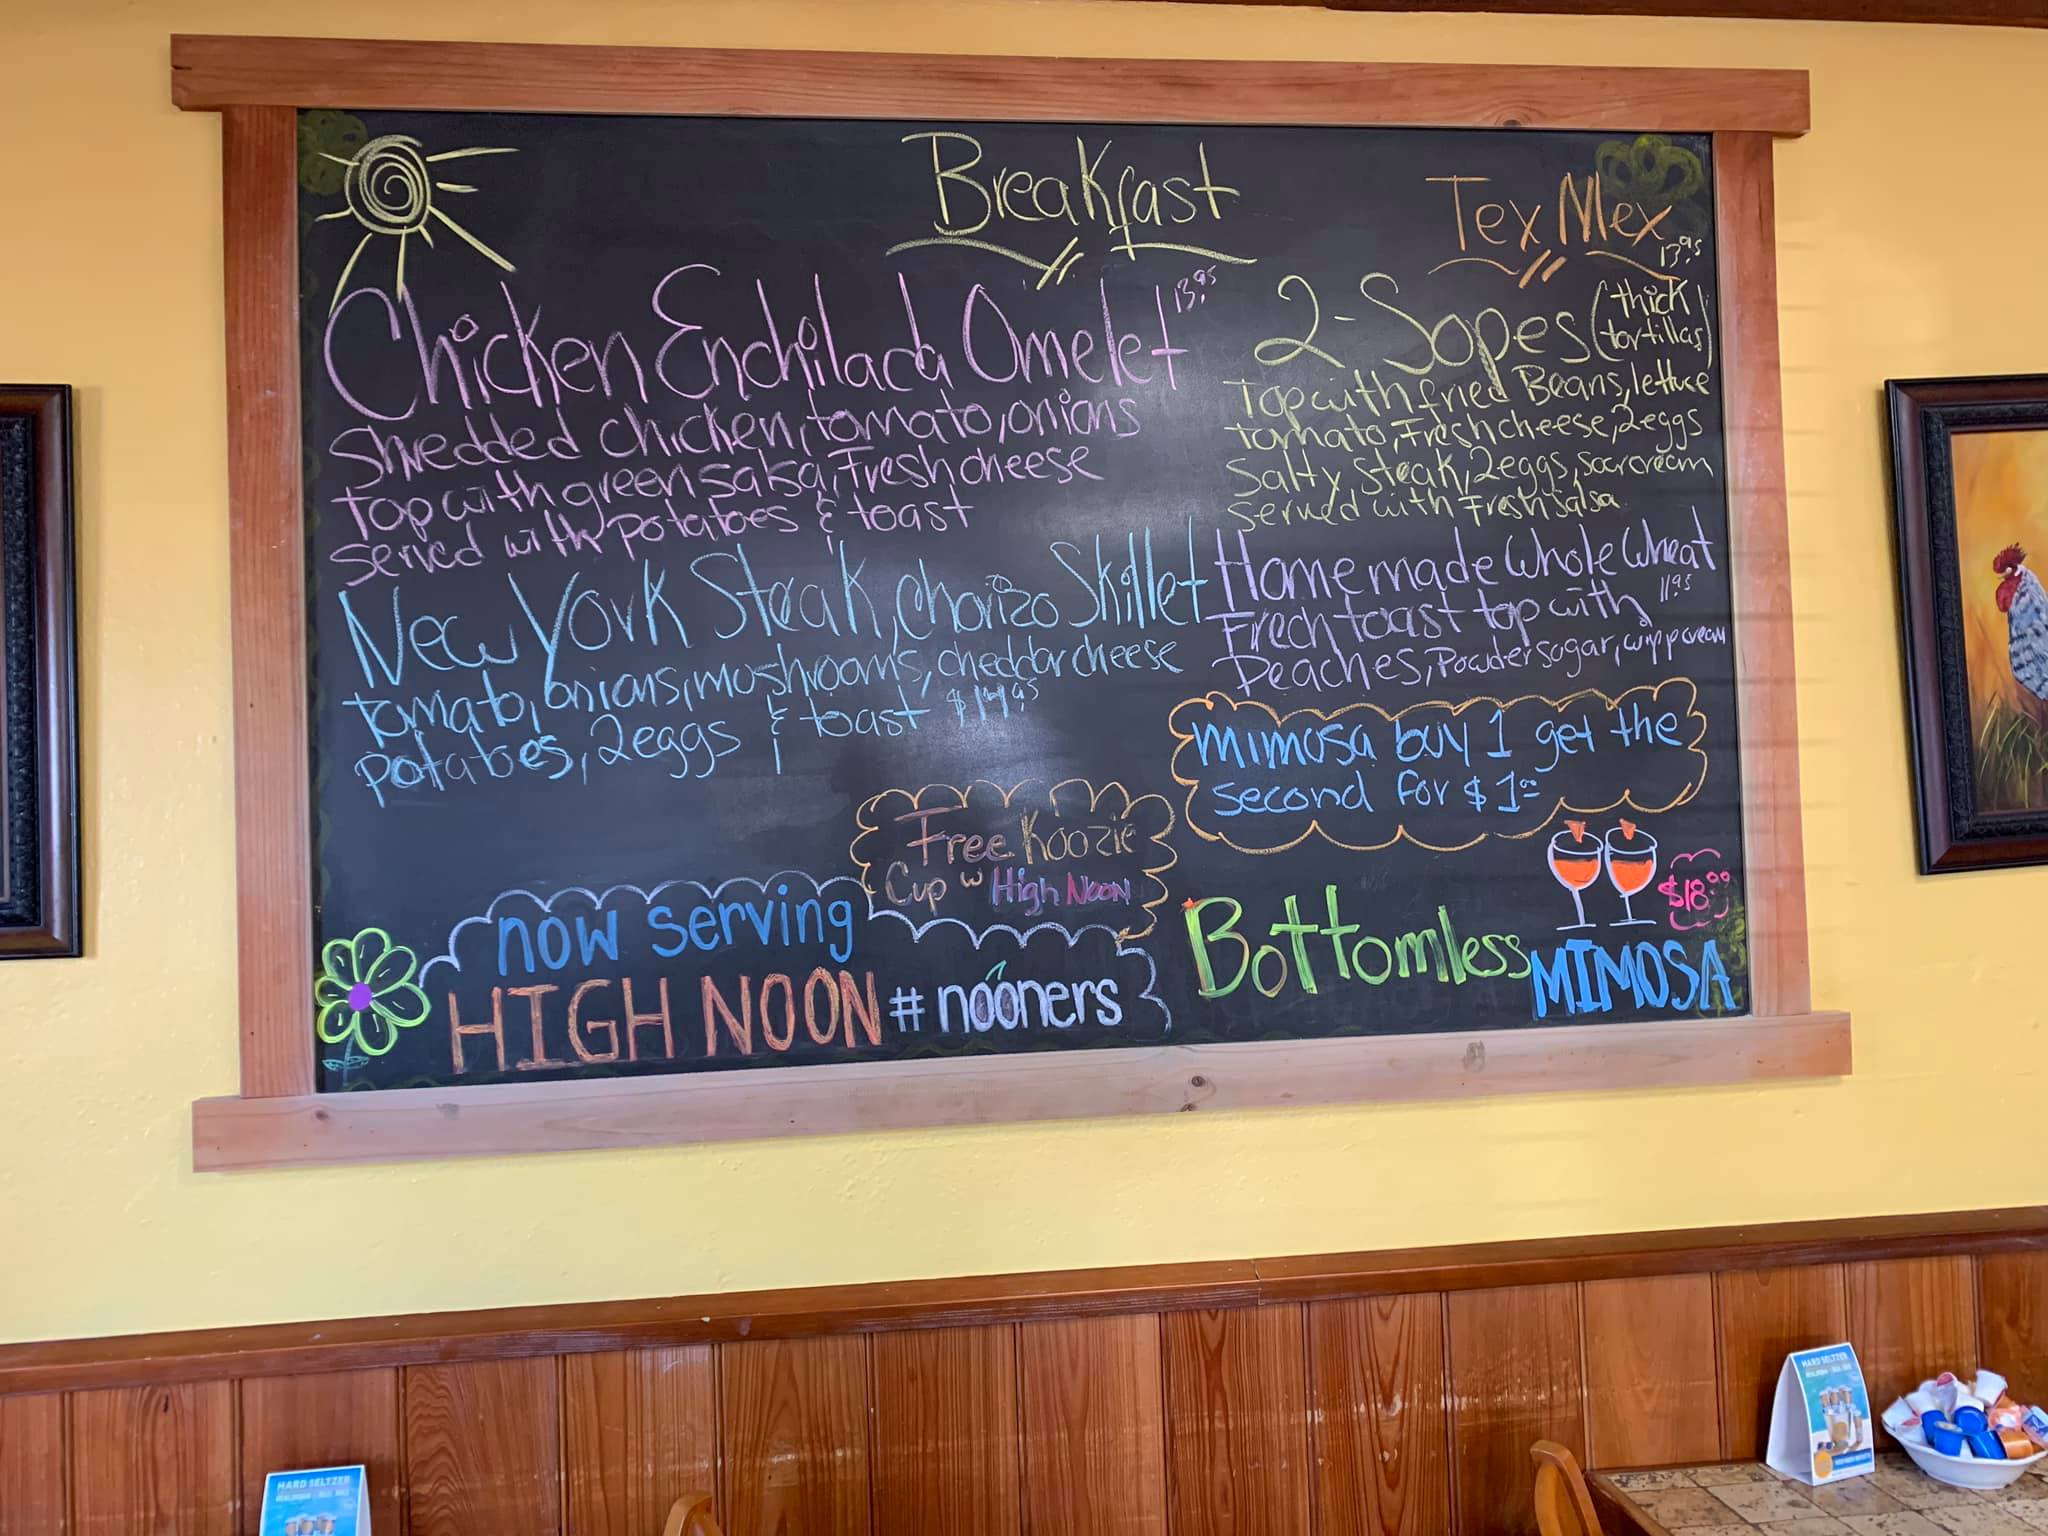 Breakfast
Chicken Enchilada Omelet 13.95
shredded chicken, tomato, onions
top with green salsa, Fresh cheese
served with potatoes & toast
New York Steak, chorizo Skillet
tomato, onions, mushrooms, cheddar cheese
potatoes, 2eggs & toast $14.95
Tex Mex
13.95
2-Sopes (thick tortillas)
Top with fried Beans, lettuce
tomato, Fresh cheese, 2eggs
Salty Steak, 2eggs, sour cream
served with Fresh salsa
Homemade Whole Wheat
Frech toast top with 11.95
Peaches, Powder sugar, wipp cream
mimosa buy 1 get the
second for $1.00
Free Koozie
Cup w High Noon
now serving
HIGH NOON #nooners
$18.99
Bottomless MIMOSA
HARD SELTZER
HARD SELTZER